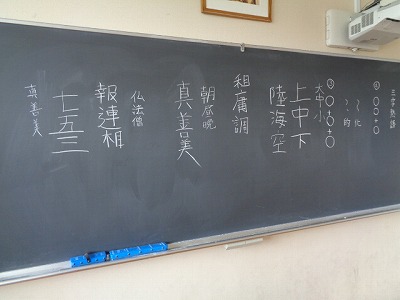 三字熟語
① ○○○+○
〜化
〜的
② ○+○+○
大中小
上中下
陸海空
租庸調
朝昼晩
真善美
仏法僧
報連相
七五三
真善美